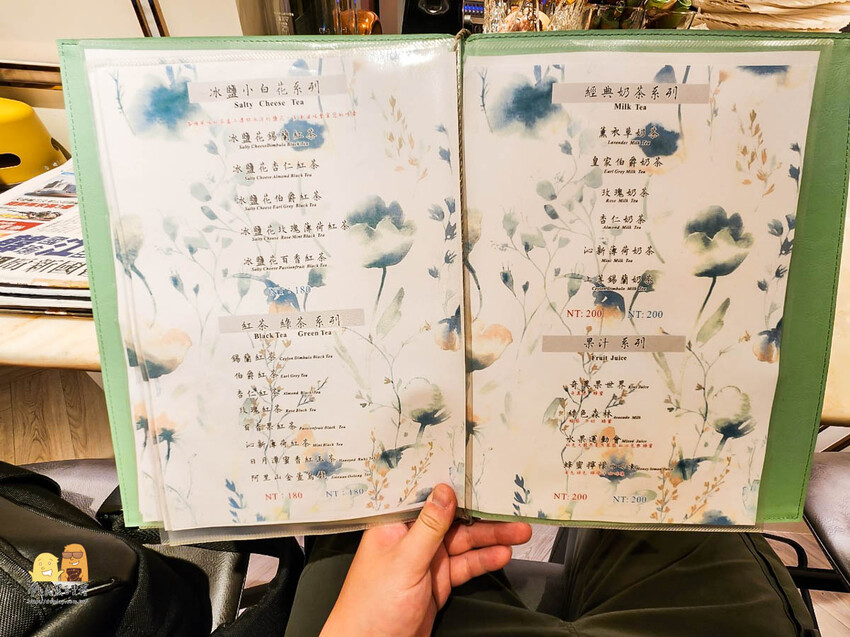 冰鹽小白花系列
Salty Cheese Tea
冰鹽花錫蘭紅茶
Salty Cheese Dimbula Black Tea
冰鹽花杏仁紅茶
Salty Cheese Almond Black Tea
冰鹽花伯爵紅茶
Salty Cheese Earl Grey Black Tea
冰鹽花玫瑰薄荷紅茶
Salty Cheese Rose Mint Black Tea
冰鹽花百香紅茶
Salty Cheese Passionfruit Black Tea
NT: 180
紅茶 綠茶系列
Black Tea Green Tea
錫蘭紅茶 Ceylon Dimbula Black Tea
伯爵紅茶 Earl Grey Tea
杏仁紅茶 Almond Black Tea
玫瑰紅茶 Rose Black Tea
百香果紅茶 Passionfruit Black Tea
沁新薄荷紅茶 Mint Black Tea
日月潭蜜香紅玉茶
阿里山金萱烏龍
NT: 180 NT: 180
經典奶茶系列
Milk Tea
薰衣草奶茶
Lavender Milk Tea
皇家伯爵奶茶
Earl Grey Milk Tea
玫瑰奶茶
Rose Milk Tea
杏仁奶茶
Almond Milk Tea
沁新薄荷奶茶
Mint Milk Tea
上等錫蘭奶茶
Ceylon Dimbula Milk Tea
NT: 200 NT: 200
果汁 系列
Fruit Juice
奇異果世界 Kiwi Juice
綠色森林 Avocado Milk
水果運動會 Mixed Juice
蜂蜜檸檬
NT: 200 NT: 200